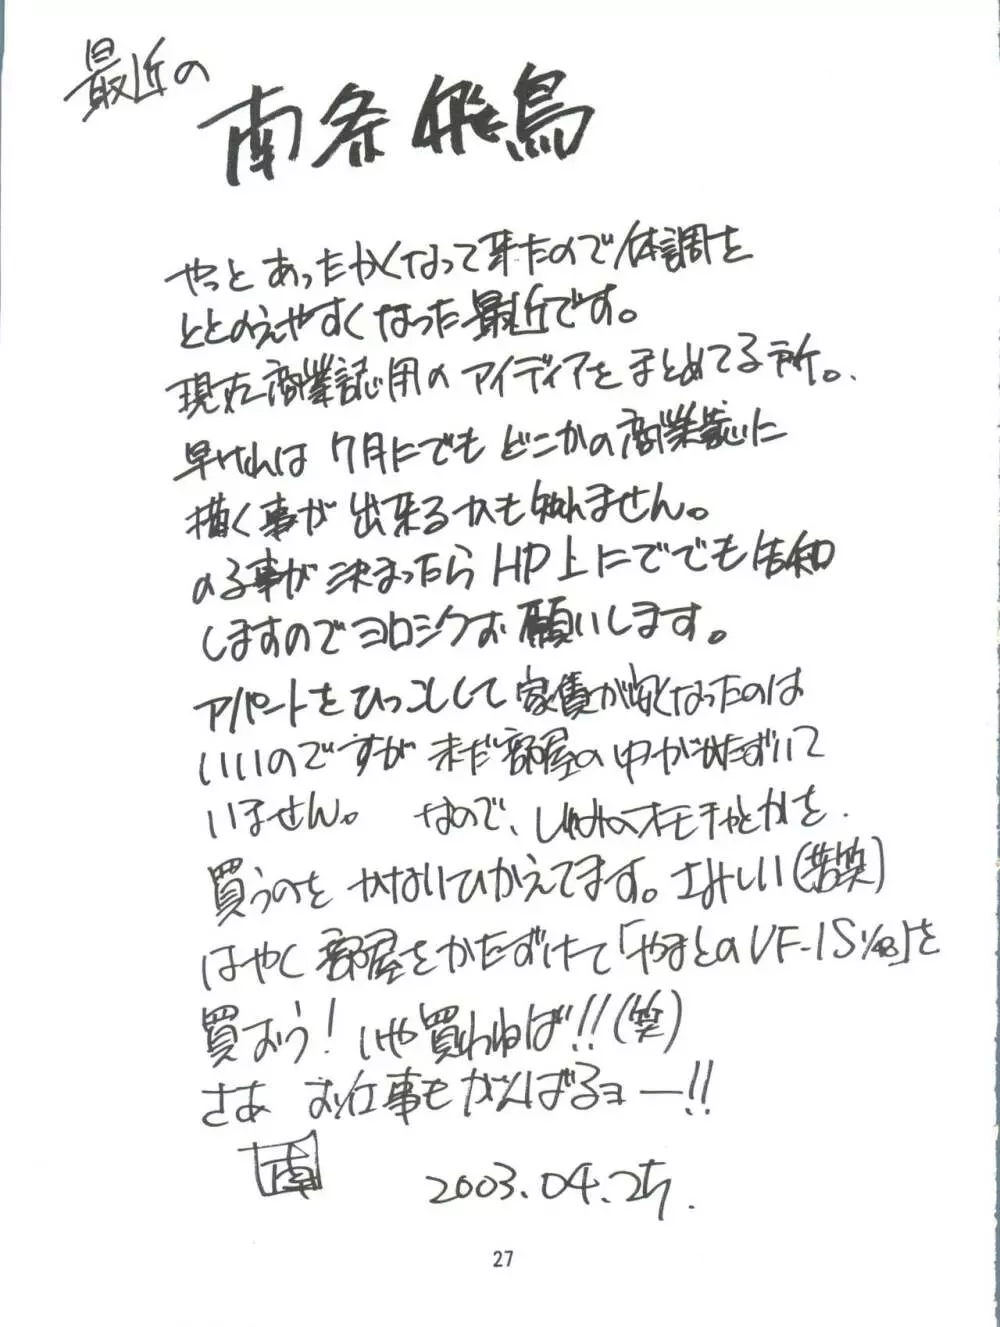 最近の
南条飛鳥
やっとあったかくなって来たので体調を
ととのえやすくなった最近です。
現在商業誌用のアイディアをまとめてる所。
早ければ7月にでもどこかの商業誌に
描く事が出来るかも知れません。
のる事が決まったらHP上にででも告知
しますのでヨロシクお願いします。
アパートをひっこしして家賃が安くなったのは
いいのですが未だ部屋の中がかたずいて
いません。 なので、しゅみのオモチャとかを
買うのをかないひかえてます。さみしい(苦笑)
はやく部屋をかたずけて「やまとのVF-1S 1/48」を
買おう!いや買わねば!!(笑)
さあ お仕事もがんばるョー!!
南 2003.04.25.
27